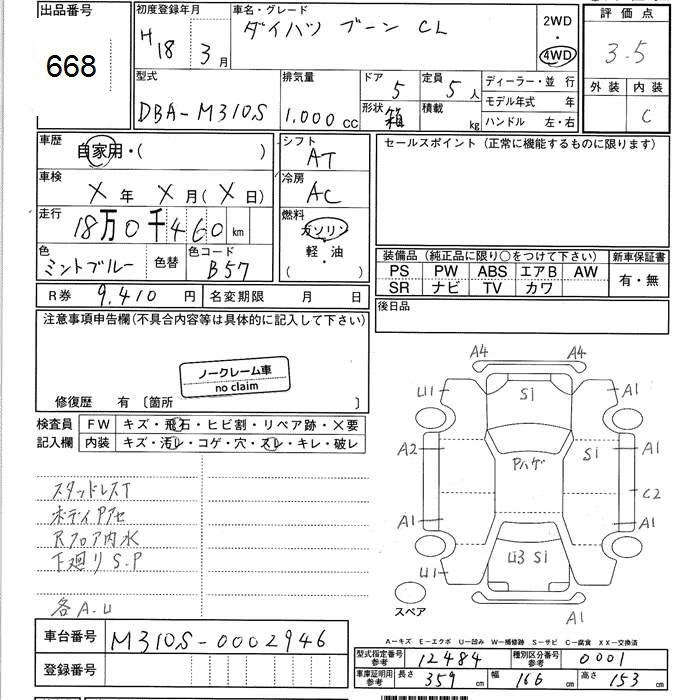 出品番号
668
初度登録年月
H18 3月
車名・グレード
ダイハツ ブーン CL
2WD
・
4WD
評価点
3.5
外装 内装
C
型式
DBA-M310S
排気量
1.000 CC
ドア
5
形状
箱
定員
5人
積載
kg
ディーラー・並行
モデル年式 年
ハンドル 左・右
車歴
自家用・( )
車検
X年 X月(X日)
走行
18万0千460 km
色
ミントブルー
色替
色コード
B57
シフト
AT
冷房
AC
燃料
ガソリン
軽・油
( )
セールスポイント (正常に機能するものに限ります)
装備品 (純正品に限り○をつけて下さい)
PS PW ABS エアB AW
SR ナビ TV カワ
新車保証書
有・無
R券 9,410円
名変期限 月 日
後日品
注意事項申告欄(不具合内容等は具体的に記入して下さい)
ノークレーム車
no claim
修復歴 有 〔箇所 〕
検査員
記入欄
FW キズ・飛石・ヒビ割・リペア跡・×要
内装 キズ・汚レ・コゲ・穴・スレ・キレ・破レ
スタッドレスT
ボディPアセ
Rフロア内水
下廻りS.P
各A.U
A4 A4
U1 S1 A1
A2 Pハゲ S1 A1
C2
A1 A1
U1 U3 S1
スペア
A1
A-キズ E-エクボ U-凹み W-補修跡 S-サビ C-腐食 XX-交換済
車台番号
M310S-0002946
登録番号
型式指定番号
参考
12484
種別区分番号
参考
0001
車庫証明用
参考
長さ 359 cm
幅 166 cm
高さ 153 cm